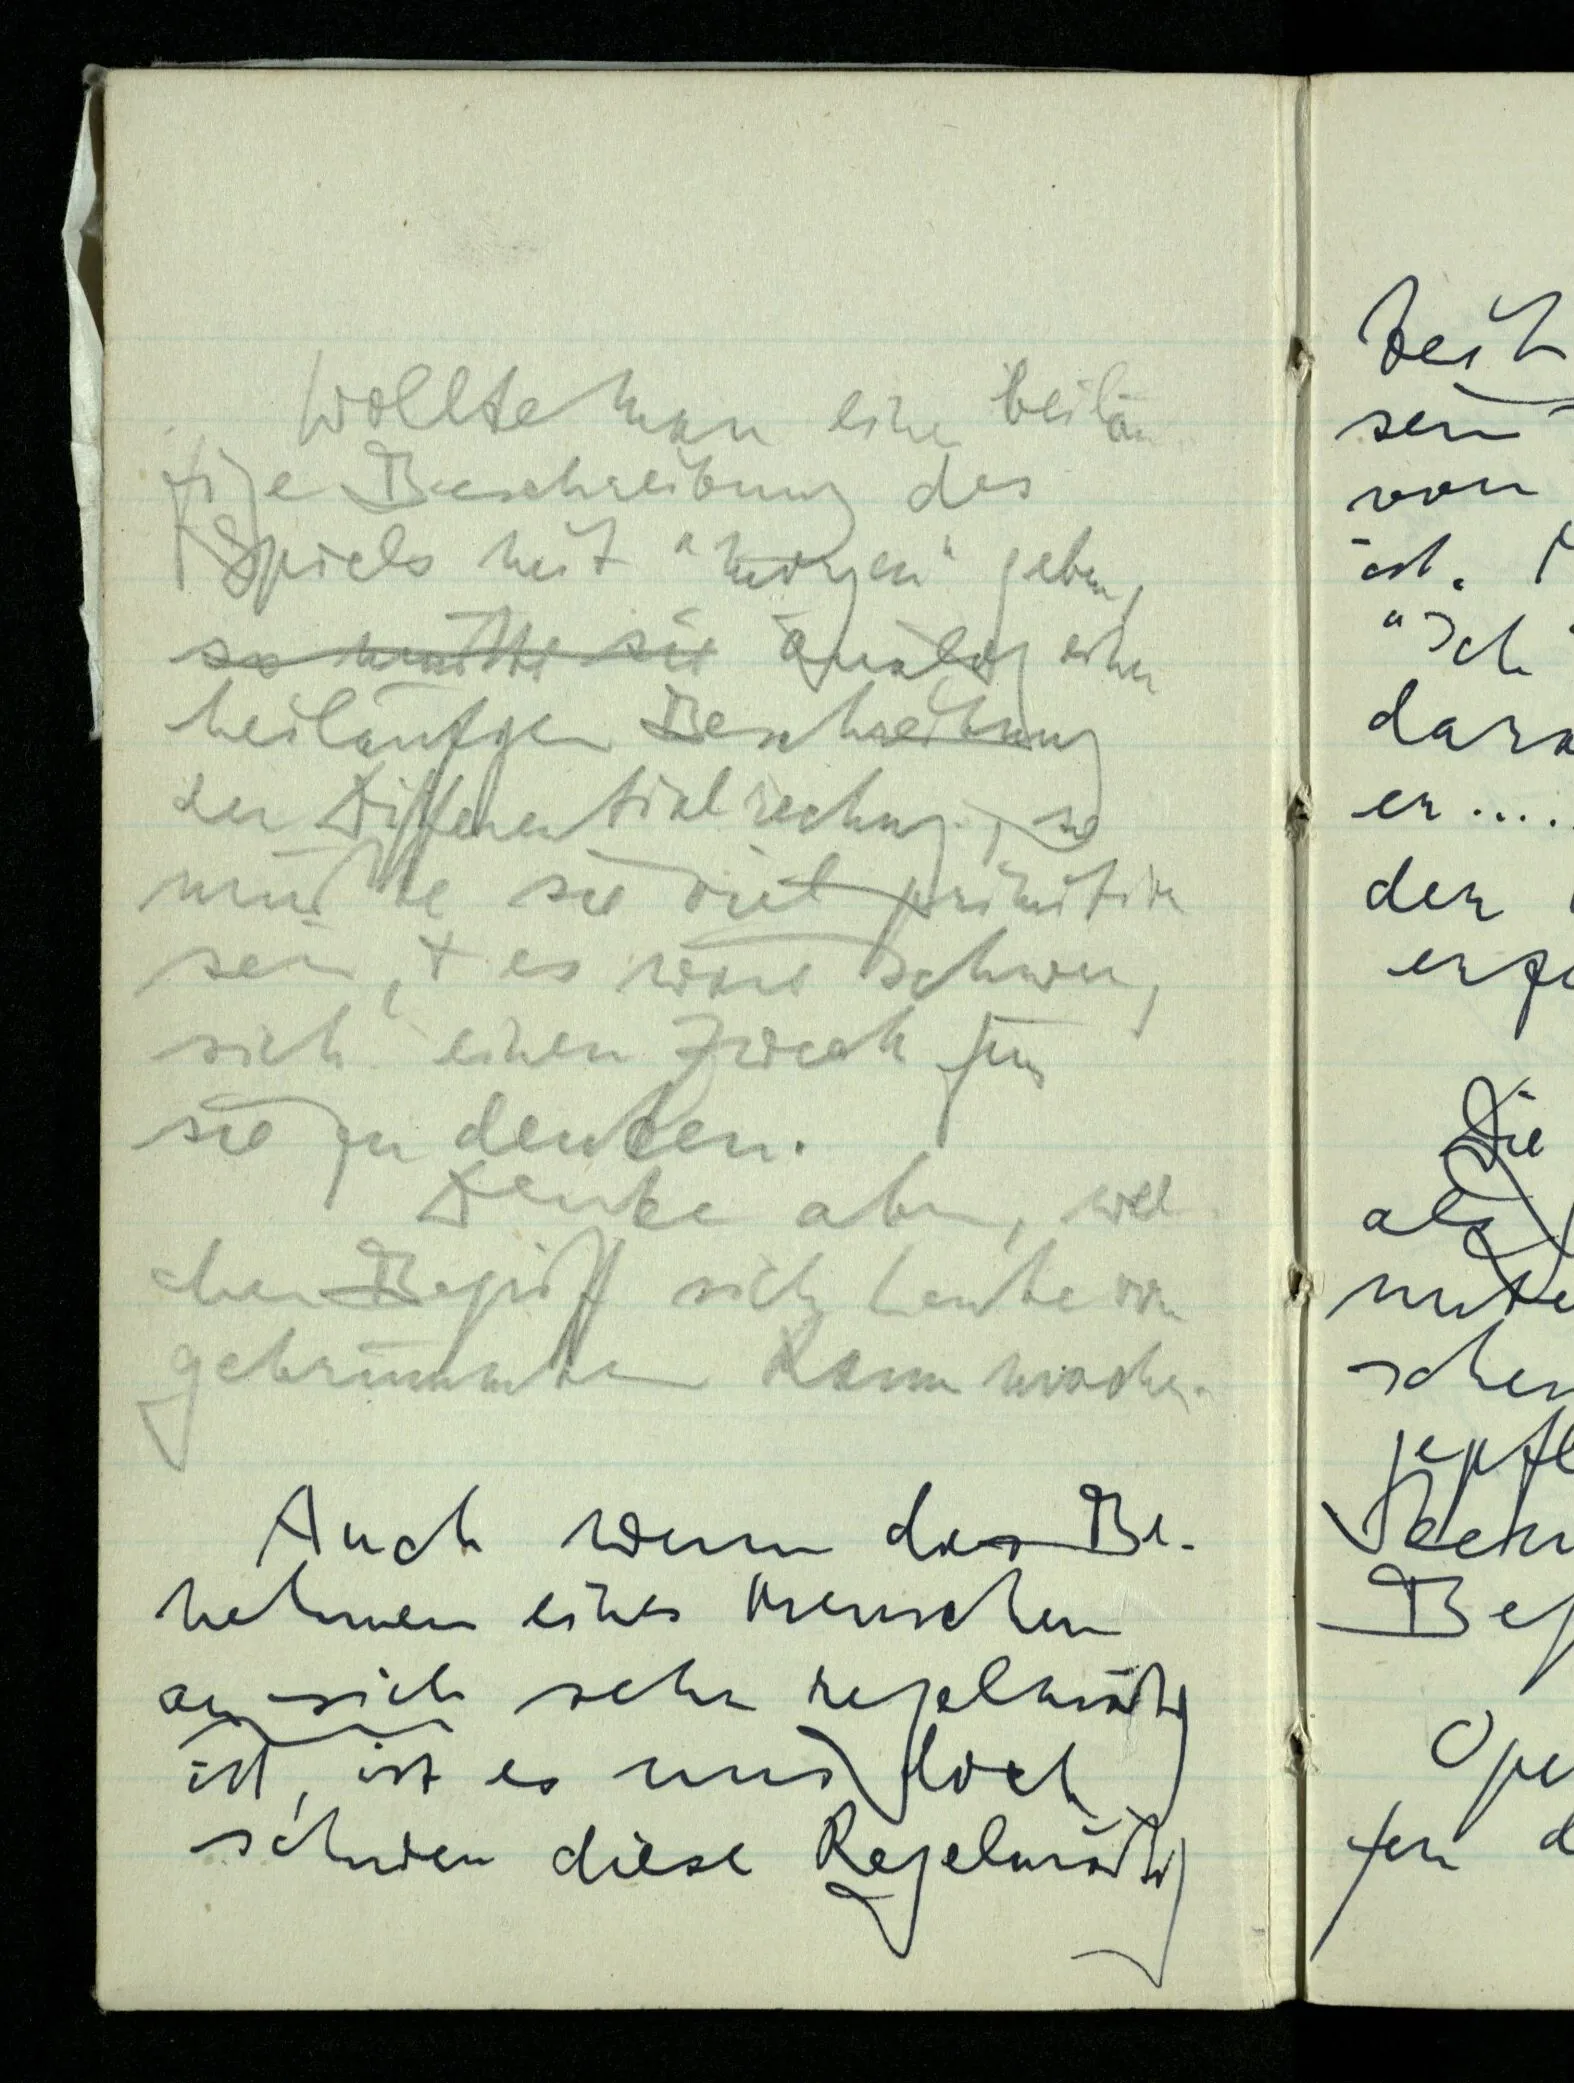 Wollte man eine beiläu-
fige Beschreibung des
Spiels mit "morgen" geben,
so müßte sie analog einer
beiläufigen Beschreibung
der Differentialrechnung, so
müßte sie viel primitiver
sein, + es wäre schwer,
sich einen Zweck für
sie zu denken.
Denke aber, wel-
chen Begriff sich Leute vom
gekrümmten Raum machen.
Auch wenn das Be-
nehmen eines Menschen
an sich sehr regelmäßig
ist, ist es uns doch
schwer diese Regelmäßig
keit
sein
von
ist.
"Ich
dara
er....
der
erge
Die
als
unte
schen
gepfl
Beg
Ope
fer d